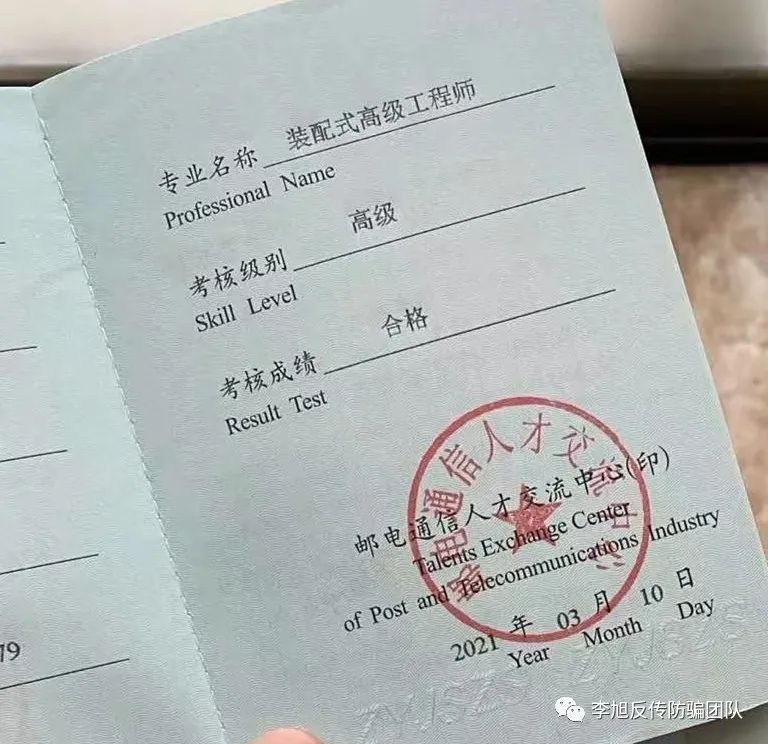 专业名称 装配式高级工程师
Professional Name
考核级别 高级
Skill Level
考核成绩 合格
Result Test
邮电通信人才交流中心(印)
Talents Exchange Center
of Post and Telecommunications Industry
2021 年 03 月 10 日
Year Month Day
邮电通信人才交流中心
79
ZYJSZS ZYJSZS
李旭反传防骗团队